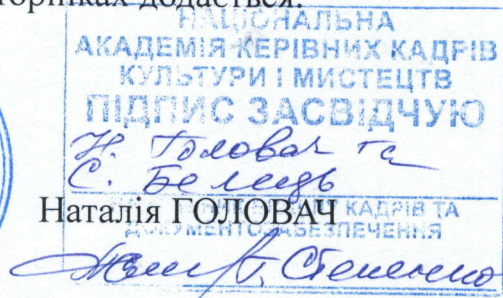 сторінках додається.
НАЦІОНАЛЬНА
АКАДЕМІЯ КЕРІВНИХ КАДРІВ
КУЛЬТУРИ І МИСТЕЦТВ
ПІДПИС ЗАСВІДЧУЮ
Н. Головач та
С.
Наталія ГОЛОВАЧ
КАДРІВ ТА
ДОКУМЕНТОЗАБЕЗПЕЧЕННЯ